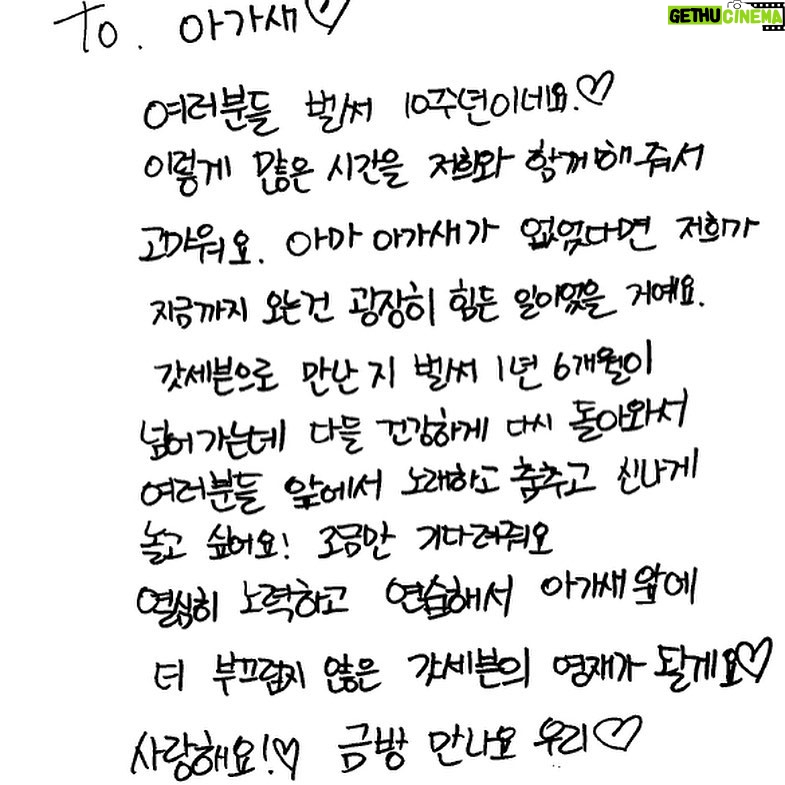 GETHUCINEMA
To. 아가새♡
여러분들 벌써 10주년이네요.♡
이렇게 많은 시간을 저희와 함께해줘서
고마워요. 아마 아가새가 없었다면 저희가
지금까지 오는건 굉장히 힘든 일이었을 거예요.
갓세븐으로 만난지 벌써 1년 6개월이
넘어가는데 다들 건강하게 다시 돌아와서
여러분들 앞에서 노래하고 춤추고 신나게
놀고 싶어요! 조금만 기다려줘요
열심히 노력하고 연습해서 아가새 앞에
더 부끄럽지 않은 갓세븐의 영재가 될게요♡
사랑해요!♡ 금방 만나요 우리♡